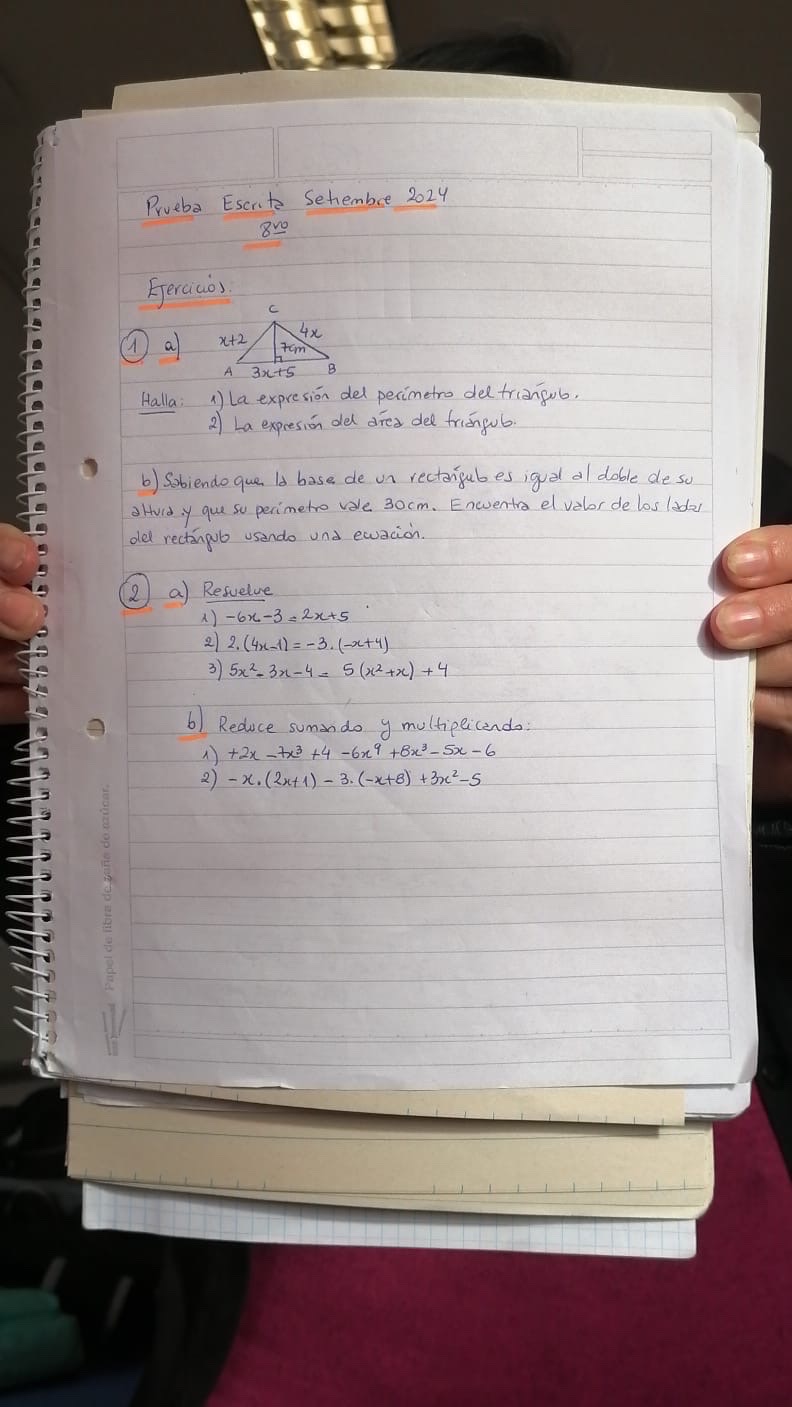 Prueba Escrita Setiembre 2024
8vo
Ejercicios:
1 a)
C
x+2
4x
7cm
A
3x+5
B
Halla: 1) La expresión del perímetro del triángulo.
2) La expresión del área del triángulo.
b) Sabiendo que la base de un rectángulo es igual al doble de su
altura y que su perímetro vale 30cm. Encuentra el valor de los lados
del rectángulo usando una ecuación.
2 a) Resuelve
1) -6x-3=2x+5
2) 2.(4x-1)=-3.(-x+4)
3) 5x²-3x-4= 5(x²+x)+4
b) Reduce sumando y multiplicando:
1) +2x -7x³ +4 -6x⁹ +8x³ -5x -6
2) -x.(2x+1) -3.(-x+8) +3x²-5
Papel de fibra de caña de azúcar.